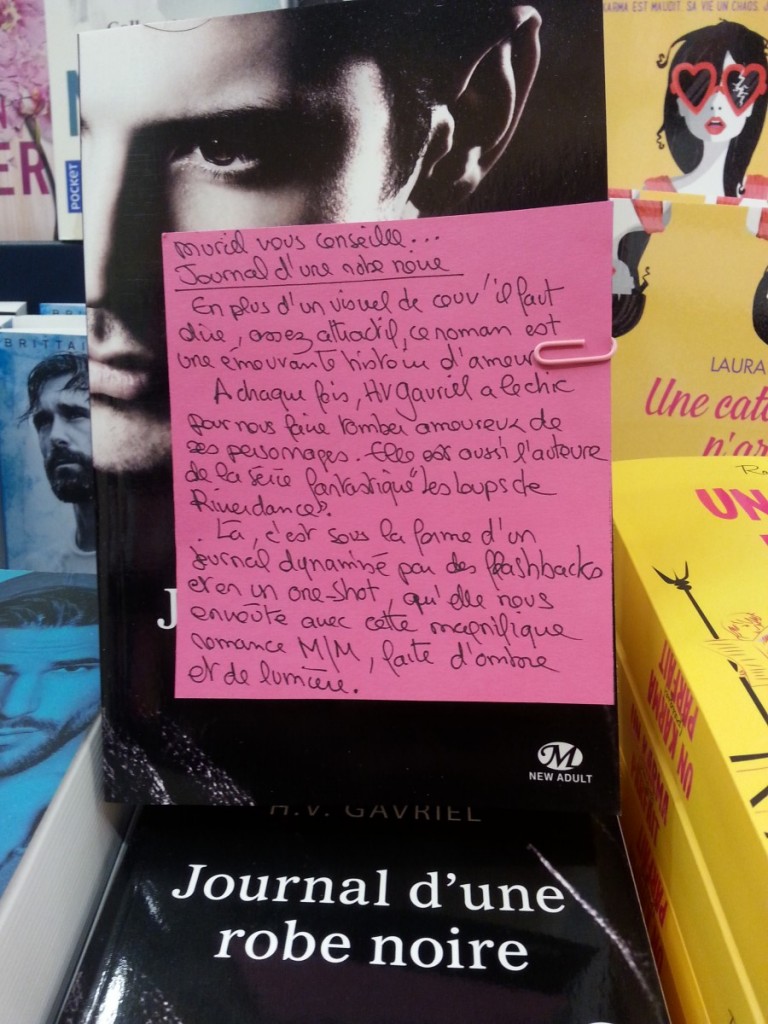 KARMA EST MAUDIT. SA VIE UN CHAOS.
ER
POCKET
BRITTAI
LAURA
Une cat
n'ar
UN
UN KARMA
PARFAIT
Muriel vous conseille...
Journal d'une robe noire
En plus d'un visuel de couv' il faut
dire, assez attractif, ce roman est
une émouvante histoire d'amour.
A chaque fois, HV Gavriel a le chic
pour nous faire tomber amoureux de
ses personnages. Elle est aussi l'auteure
de la série fantastique "Les loups de
Riverdance".
. Là, c'est sous la forme d'un
journal dynamisé par des flashbacks
et en un one-shot, qu'elle nous
envoûte avec cette magnifique
romance M/M, faite d'ombre
et de lumière.
J
M
NEW ADULT
H.V. GAVRIEL
Journal d'une
robe noire